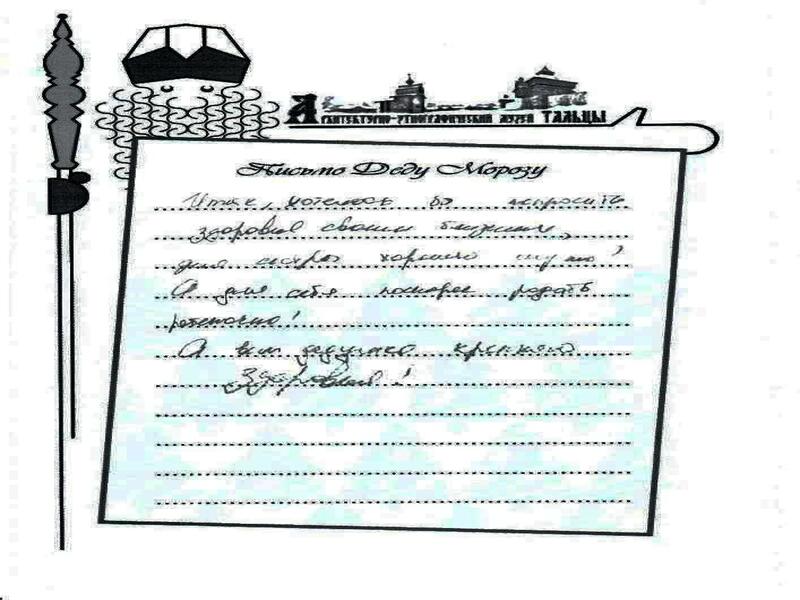 Архитектурно-этнографический музей ТАЛЬЦЫ
Письмо Деду Морозу
Итак, хотелось бы попросить
здоровье своим близким,
для сестры хорошего мужа!
А для себя поскорее родить
ребеночка!
А вам дедушка крепкого
Здоровья!